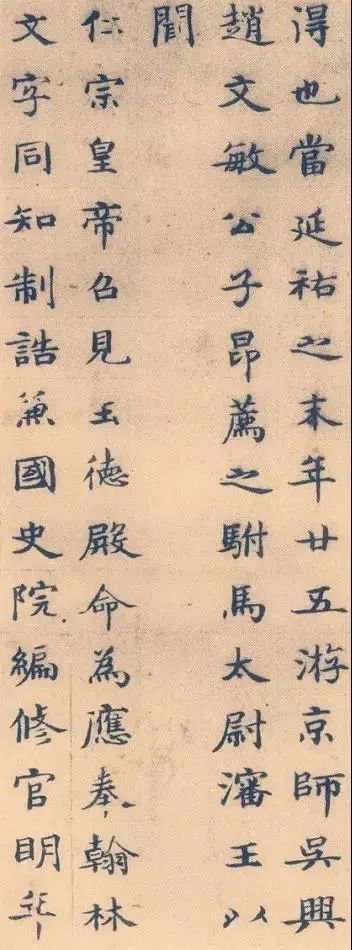 得也當延祐之末年廿五游京師吳興
趙文敏公子昂薦之駙馬太尉瀋王以
聞
仁宗皇帝召見玉德殿命為應奉翰林
文字同知制誥兼國史院編修官明年